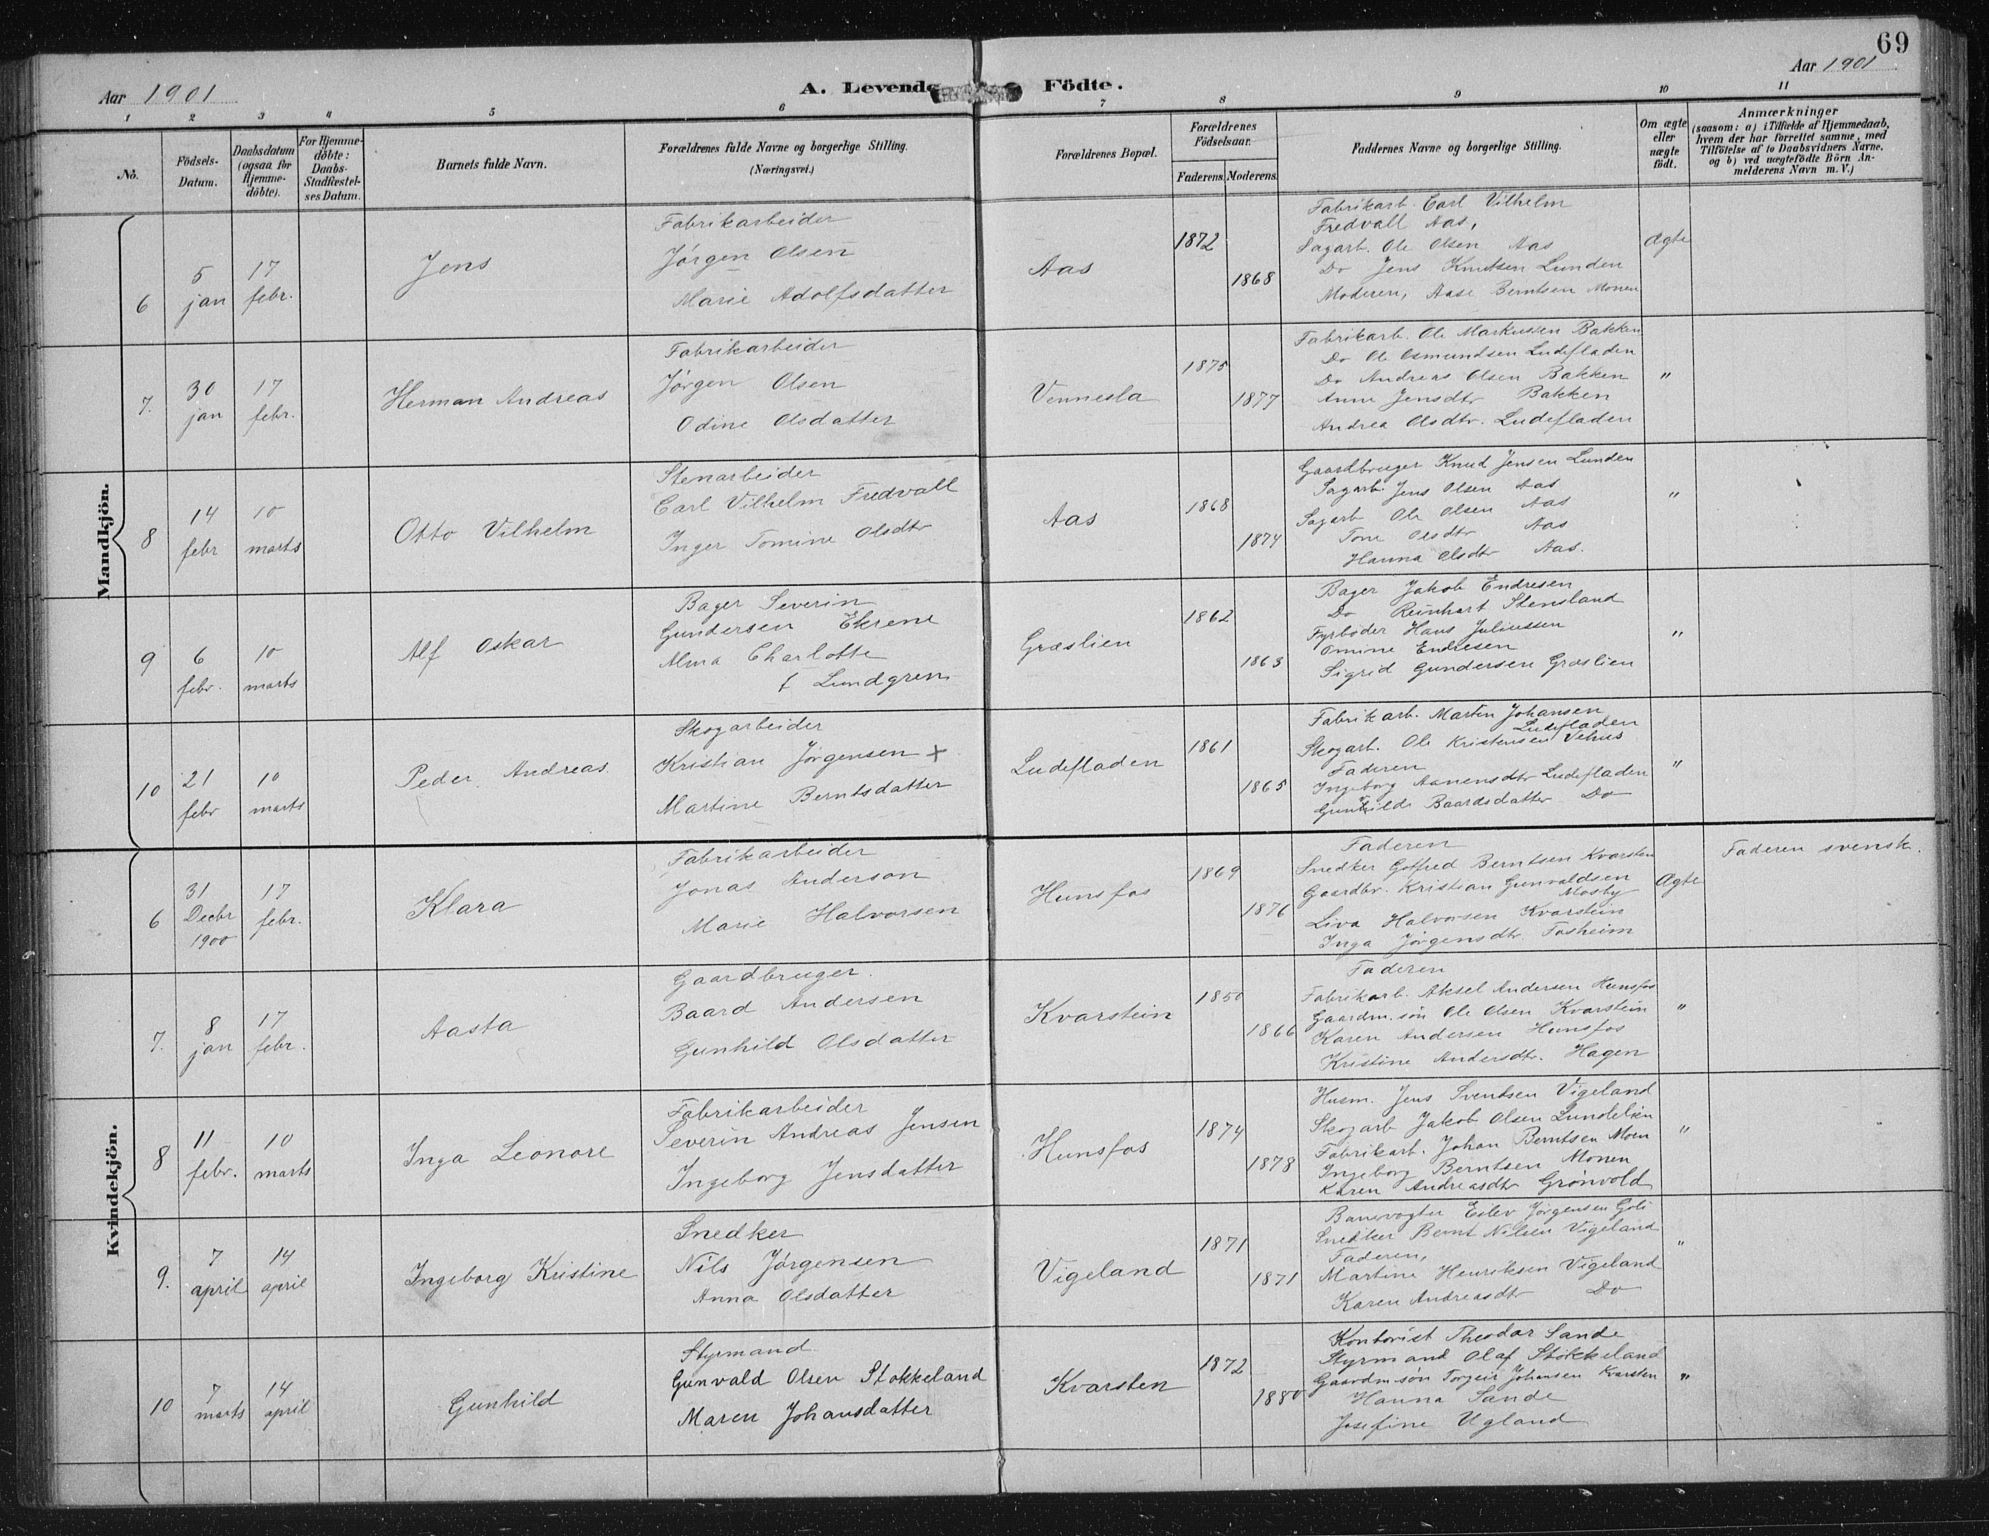 69
Aar 1901
A. Levende Födte.
Aar 1901
1 2 3 4 5 6 7 8 9 10 11
No.
Födsels-Datum.
Daabsdatum (ogsaa for Hjemme-döbte).
For Hjemme-döbte: Daabs-Stadfæstel-ses Datum.
Barnets fulde Navn.
Forældrenes fulde Navne og borgerlige Stilling.
(Næringsvei.)
Forældrenes Bopæl.
Forældrenes Födselsaar.
Faderens. Moderens.
Faddernes Navne og borgerlige Stilling.
Om ægte eller uægte födt.
Anmærkninger
(saasom: a) i Tilfælde af Hjemmedaab, hvem der har forrettet samme, med Tilföielse af to Daabsvidners Navne, og b) ved uægtefödte Börn Anmelderens Navn m. V.)
Mandkjön.
6
5 jan
17 febr.
Jens
Fabrikarbeider
Jørgen Olsen
Marie Adolfsdatter
Aas
1872
1868
Fabrikarb. Carl Vilhelm
Fredvall Aas,
Sagarb. Ole Olsen Aas
Do Jens Knutsen Lunden
Moderen, Aase Berntsen Monen
Ægte
7.
30 jan
17 febr.
Herman Andreas
Fabrikarbeider
Jørgen Olsen
Odine Olsdatter
Vennesla
1875
1877
Fabrikarb. Ole Markussen Bakken
Do Ole Osmundsen Ludefladen
Do Andreas Olsen Bakken
Anne Jensdtr Bakken
Andrea Olsdtr. Ludefladen
"
8
14 febr
10 marts
Otto Vilhelm
Stenarbeider
Carl Vilhelm Fredvall
Inger Tomine Olsdtr
Aas
1868
1874
Gaardbruger Knud Jensen Lunden
Sagarb. Jens Olsen Aas
Sagarb Ole Olsen Aas
Tone Olsdtr Aas
Hanna Olsdtr Aas.
"
9
6 febr.
10 marts
Alf Oskar
Bager Severin
Gundersen Ekrene
Alma Charlotte
f Lundgren
Græslien
1862
1863
Bager Jakob Endresen
Do Reinhart Stensland
Fyrbøder Hans Juliussen
Omine Endresen
Sigrid Gundersen Græslien
"
10
21 febr
10 marts
Peder Andreas
Skogarbeider
Kristian Jørgensen +
Martine Berntsdatter
Ludefladen
1861
1865
Fabrikarb. Marten Johansen
Ludefladen
Skogarb. Ole Kristensen Vehus
Faderen
Ingeborg Aanensdtr Ludefladen
Gunhilde Baardsdatter Do
"
Kvindekjön.
6
31 Decbr 1900
17 febr.
Klara
Fabrikarbeider
Jonas Anderson
Marie Halvorsen
Hunsfos
1869
1876
Faderen
Snedker Gotfred Berntsen Kvarsten
Gaardbr. Kristian Gunvaldsen
Mosby
Liva Halvorsen Kvarstein
Inga Jørgensdtr. Tosheim
Ægte
Faderen svensk.
7.
8 jan
17 febr.
Aasta
Gaardbruger.
Baard Andersen
Gunhild Olsdatter
Kvarstein
1850
1866
Faderen
Fabrikarb. Aksel Andersen Hunsfos
Gaardm. søn Ole Olsen Kvarstein
Karen Andersen Hunsfos
Kristine Andersdtr. Hagen
"
8
11 febr.
10 marts
Inga Leonore
Fabrikarbeider
Severin Andreas Jensen
Ingeborg Jensdatter
Hunsfos
1874
1878
Husm. Jens Sventsen Vigeland
Skogarb Jakob Olsen Lundelien
Fabrikarb. Johan Berntsen Moen
Ingeborg Berntsen Monen
Karen Andreasdtr Grønvold
"
9.
7 april
14 april
Ingeborg Kristine
Snedker
Nils Jørgensen
Anna Olsdatter
Vigeland
1871
1871
Banevogter Eilev Jørgensen
Snedker Bernt Nilsen Vigeland
Faderen,
Martine Henriksen Vigeland
Karen Andreasdtr Do
"
10
7 marts
14 april
Gunhild
Styrmand
Gunvald Olsen Stokkeland
Maren Johansdatter
Kvarsten
1872
1880
Kontorist Theodor Sande
Styrmand Olaf Stokkeland
Gaardm søn Torgeir Johansen Kvarsten
Hanna Sande
Josefine Ugland
"